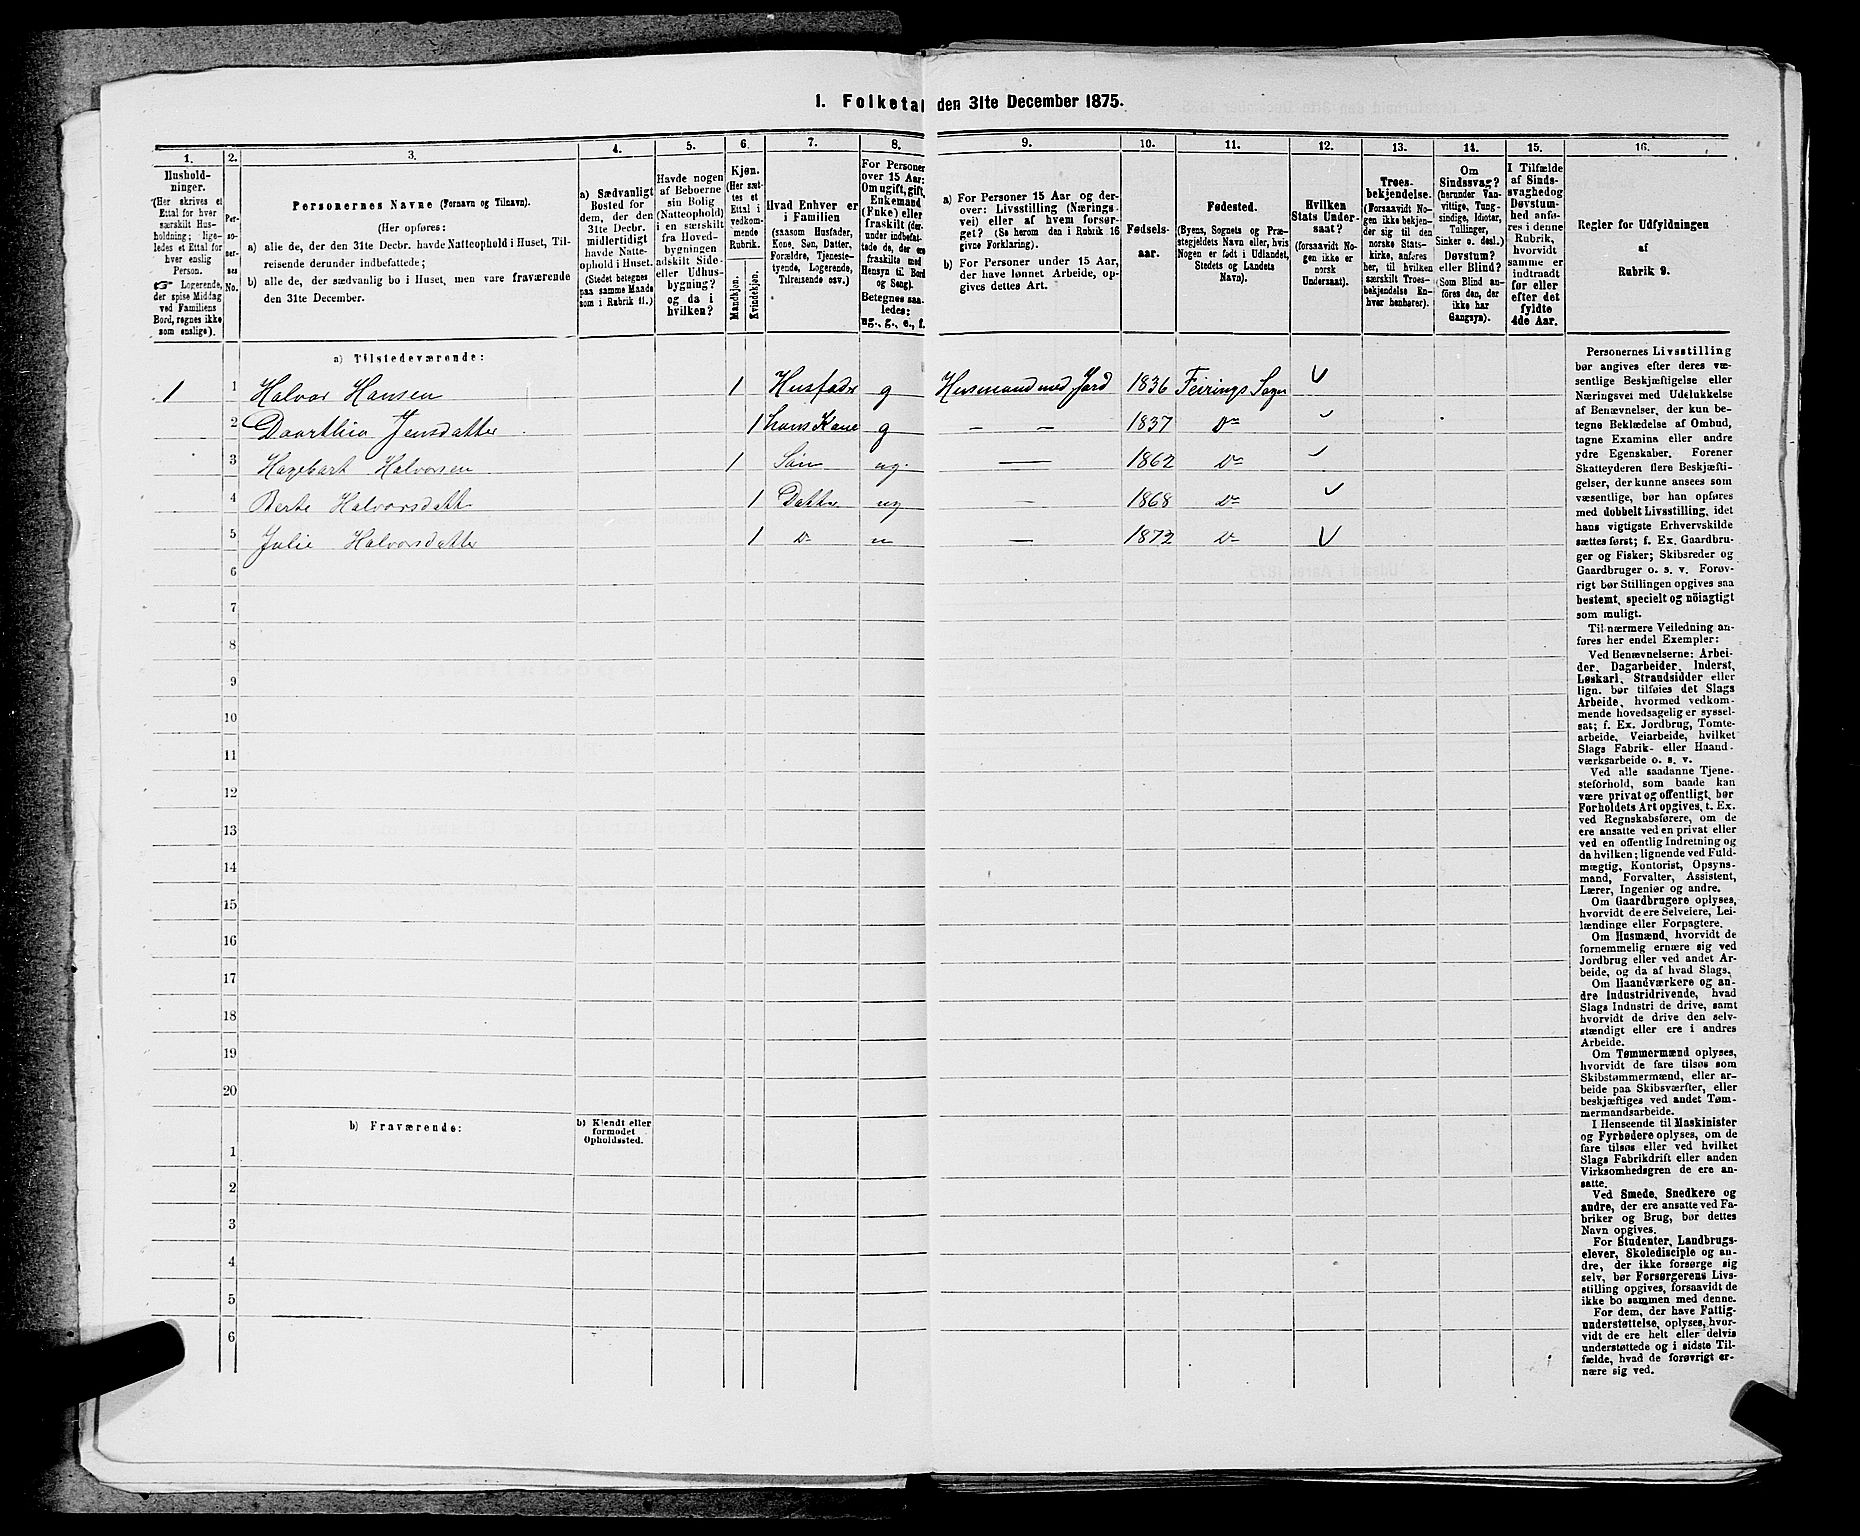 1. Folketal den 31te December 1875.
1. 2. 3. 4. 5. 6. 7. 8. 9. 10. 11. 12. 13. 14. 15. 16.
Hushold-
ninger.
(Her skrives et
Ettal for hver
særskilt Hus-
holdning; lige-
ledes et Ettal for
hver enslig
Person.
☞ Logerende,
der spise Middag
ved Familiens
Bord, regnes ikke
som enslige).
Per-
so-
ner-
nes
No.
Personernes Navne (Fornavn og Tilnavn).
(Her opføres:
a) alle de, der den 31te Decbr. havde Natteophold i Huset, Til-
reisende derunder indbefattede;
b) alle de, der sædvanlig bo i Huset, men vare fraværende
den 31te December.
a) Sædvanligt
Bosted for
dem, der den
31te Decbr.
midlertidigt
havde Natte-
ophold i Huset.
(Stedet betegnes
paa samme Maade
som i Rubrik 11.)
Havde nogen
af Beboerne
sin Bolig
(Natteophold)
i en særskilt
fra Hoved-
bygningen
adskilt Side-
eller Udhus-
bygning?
og da i
hvilken?
Kjøn.
(Her sæt-
tes et
Ettal i
vedkom-
mende
Rubrik.
Mandkjøn.
Kvindekjøn.
Hvad Enhver er
i Familien
(saasom Husfader,
Kone, Søn, Datter,
Forældre, Tjeneste-
tyende, Logerende,
Tilreisende osv.)
For Personer
over 15 Aar:
Om ugift, gift,
Enkemand
(Enke) eller
fraskilt (der-
under indbefat-
tede de, der ere
fraskilte med
Hensyn til Bord
og Seng).
Betegnes saa-
ledes:
ug., g., e., f.
a) For Personer 15 Aar og der-
over: Livsstilling (Nærings-
vei) eller af hvem forsør-
get? (Se herom den i Rubrik 16
givne Forklaring).
b) For Personer under 15 Aar,
der have lønnet Arbeide, op-
gives dettes Art.
Fødsels-
aar.
Fødested.
(Byens, Sognets og Præ-
stegjeldets Navn eller, hvis
Nogen er født i Udlandet,
Stedets og Landets
Navn).
Hvilken
Stats Under-
saat?
(forsaavidt No-
gen ikke er
norsk
Undersaat).
Troes-
bekjendelse.
(Forsaavidt No-
gen ikke bekjen-
der sig til den
norske Stats-
kirke, anføres
her, til hvilken
særskilt Troes-
bekjendelse En-
hver henhører).
Om
Sindssvag?
(herunder Van-
vittige, Tung-
sindige, Idioter,
Tullinger,
Sinker o. desl.)
Døvstum?
eller Blind?
(Som Blind an-
føres den, der
ikke har
Gangsyn).
I Tilfælde
af Sinds-
svaghed og
Døvstum-
hed anfø-
res i denne
Rubrik,
hvorvidt
samme er
indtraadt
før eller
efter det
fyldte
4de Aar.
Regler for Udfyldningen
af
Rubrik 9.
a) Tilstedeværende:
1 1 Halvor Hansen 1 Husfader g Husmand med Jord 1836 Feirings Sogn
2 Daarthea Jensdatter 1 hans Kone g — — 1837 Do
3 Hagebart Halvorsen 1 Søn ug. — 1862 Do
4 Berte Halvorsdatt 1 Datter ug — 1868 Do
5 Julie Halvorsdatter 1 Do — 1872 Do
6
7
8
9
10
11
12
13
14
15
16
17
18
19
20
b) Fraværende:
b) Kjendt eller
formodet
Opholdssted.
1
2
3
4
5
6
Personernes Livsstilling
bør angives efter deres væ-
sentlige Beskjæftigelse eller
Næringsvei med Udelukkelse
af Benævnelser, der kun be-
tegne Beklædelse af Ombud,
tagne Examina eller andre
ydre Egenskaber. Forener
Skatteyderen flere Beskjæfti-
gelser, der kunne ansees som
væsentlige, bør han opføres
med dobbelt Livsstilling, idet
hans vigtigste Erhvervskilde
sættes først; f. Ex. Gaardbru-
ger og Fisker; Skibsreder og
Gaardbruger o. s. v. Forøv-
rigt bør Stillingen opgives saa
bestemt, specielt og nöiagtigt
som muligt.
Til nærmere Veiledning an-
føres her endel Exempler:
Ved Benævnelserne: Arbei-
der, Dagarbeider, Inderst,
Løskarl, Strandsidder eller
lign. bør tilføies det Slags
Arbeide, hvormed vedkom-
mende hovedsagelig er syssel-
sat; f. Ex. Jordbrug, Tomte-
arbeide, Veiarbeide, hvilket
Slags Fabrik- eller Haand-
værksarbeide o. s. v.
Ved alle saadanne Tjene-
steforhold, som baade kan
være privat og offentligt, bør
Forholdets Art opgives, t. Ex.
ved Regnskabsførere, om de
ere ansatte ved en privat eller
ved en offentlig Indretning og
da hvilken; lignende ved Fuld-
mægtig, Kontorist, Opsyns-
mand, Forvalter, Assistent,
Lærer, Ingeniør og andre.
Om Gaardbrugere oplyses,
hvorvidt de ere Selveiere, Lei-
lændinge eller Forpagtere.
Om Husmænd, hvorvidt de
fornemmelig ernære sig ved
Jordbrug eller ved andet Ar-
beide, og da af hvad Slags.
Om Haandværkere og an-
dre Industridrivende, hvad
Slags Industri de drive, samt
hvorvidt de drive den selv-
stændigt eller ere i andres
Arbeide.
Om Tømmermænd oplyses,
hvorvidt de fare tilsøs som
Skibstømmermænd, eller ar-
beide paa Skibsværfter, eller
beskjæftiges ved andet Tøm-
mermandsarbeide.
I Henseende til Maskinister
og Fyrbødere oplyses, om de
fare tilsøs eller ved hvilket
Slags Fabrikdrift eller anden
Virksomhedsgren de ere an-
satte.
Ved Smede, Snedkere og
andre, der ere ansatte ved Fa-
briker og Brug, bør dettes
Navn opgives.
For Studenter, Landbrugs-
elever, Skoledisciple og an-
dre, der ikke forsørge sig
selv, bør Forsørgerens Livs-
stilling opgives, forsaavidt de
ikke bo sammen med denne.
For dem, der have Fattig-
understøttelse, oplyses, hvor-
vidt de ere helt eller delvis
understøttede og i sidste Til-
fælde, hvad de forøvrigt er-
nære sig ved.